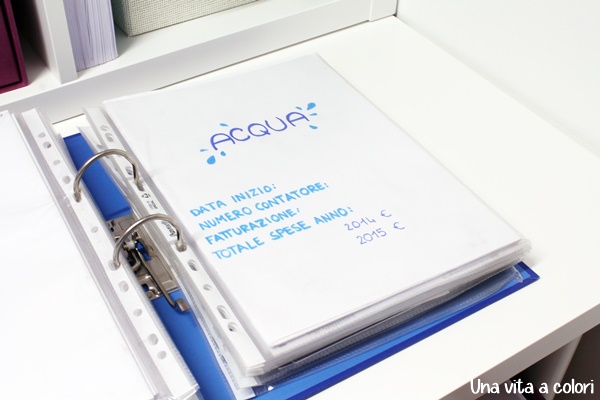 ACQUA
DATA INIZIO:
NUMERO CONTATORE:
FATTURAZIONE:
TOTALE SPESE ANNO:
2014 €
2015 €
Una vita a colori